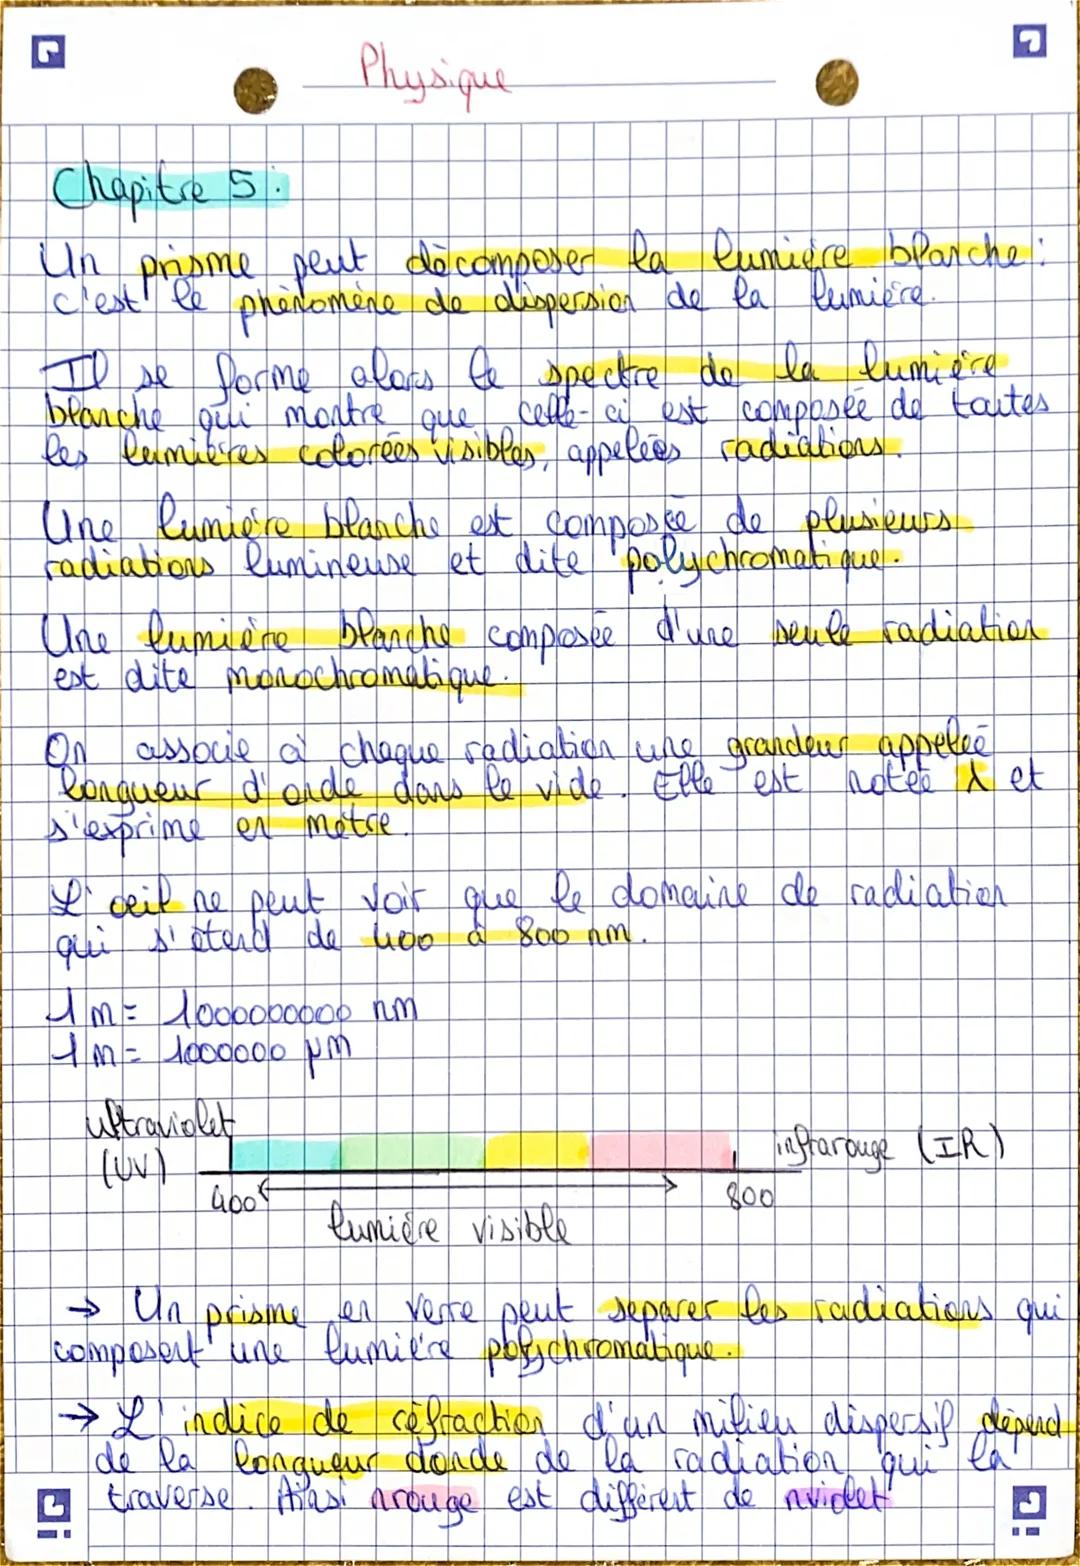 Physique
Chapitre 5 :
Un prisme peut décomposer la lumière blanche :
c'est le phénomène de dispersion de la lumière.
Il se forme alors le spectre de la lumière
blanche qui montre que celle-ci est composée de toutes
les lumières colorées visibles, appelées radiations.
Une lumière blanche est composée de plusieurs
radiations lumineuse et dite polychromatique.
Une lumière blanche composée d'une seule radiation
est dite monochromatique.
On associe à chaque radiation une grandeur appelée
longueur d'onde dans le vide. Elle est notée λ et
s'exprime en mètre.
L'oeil ne peut voir que le domaine de radiation
qui s'étend de 400 à 800 nm.
1 m = 1000000000 nm
1 m = 1000000 µm
ultraviolet
(UV)
infrarouge (IR)
400
800
lumière visible
→ Un prisme en verre peut séparer les radiations qui
composent une lumière polychromatique.
→ L'indice de réfraction d'un milieu dispersif dépend
de la longueur d'onde de la radiation qui la
traverse. Ainsi nrouge est différent de nviolet